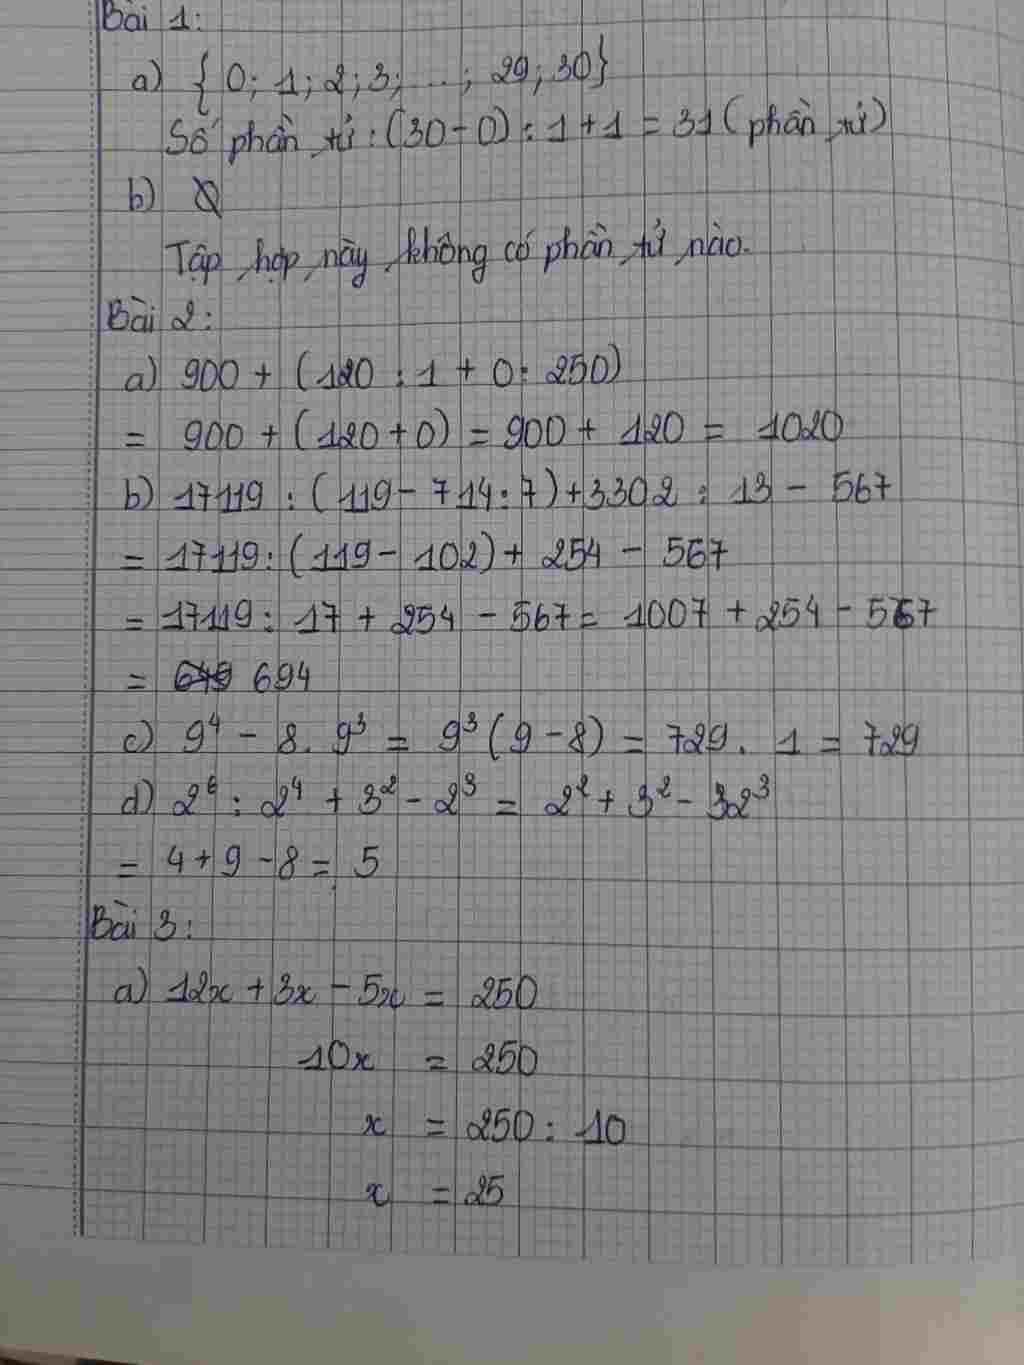 Bài 1:
a) {0; 1; 2; 3; ...; 29; 30}
Số phần tử: (30 - 0) : 1 + 1 = 31 (phần tử)
b) ∅
Tập hợp này không có phần tử nào.
Bài 2:
a) 900 + (120 : 1 + 0 : 250)
= 900 + (120 + 0) = 900 + 120 = 1020
b) 17119 : (119 - 714 : 7) + 3302 : 13 - 567
= 17119 : (119 - 102) + 254 - 567
= 17119 : 17 + 254 - 567 = 1007 + 254 - 567
= 694
c) 9⁴ - 8. 9³ = 9³ (9 - 8) = 729. 1 = 729
d) 2⁶ : 2⁴ + 3² - 2³ = 2² + 3² - 2³
= 4 + 9 - 8 = 5
Bài 3:
a) 12x + 3x - 5x = 250
10x = 250
x = 250 : 10
x = 25